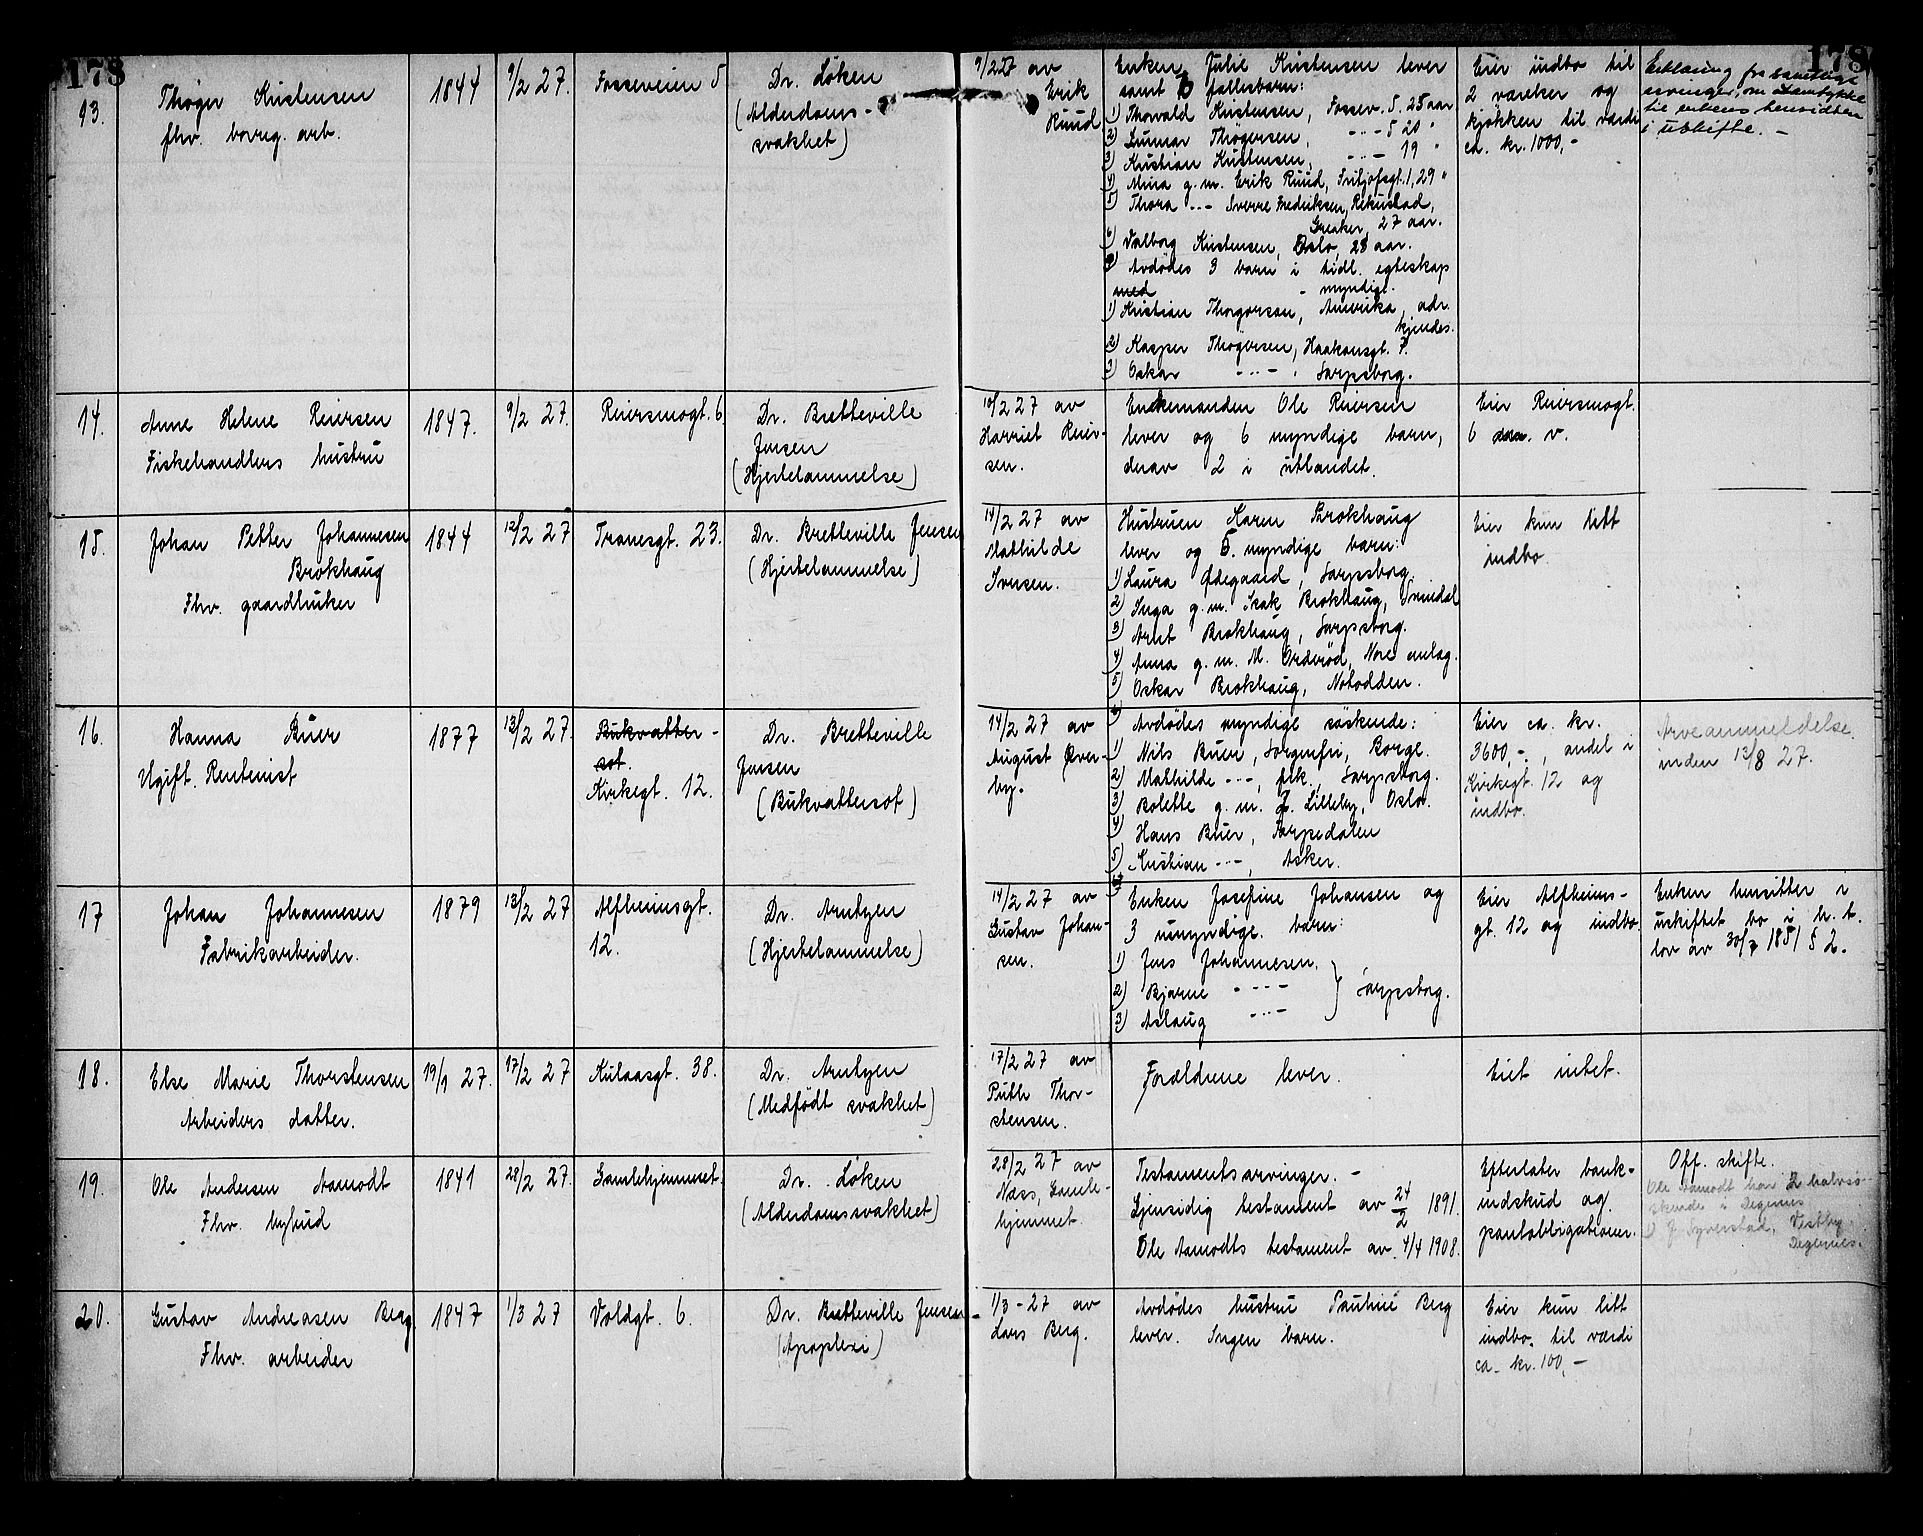 178
178
13.
Thøger Kristensen
fhv. borreg. arb.
1844
9/2 27.
Fosseveien 5
Dr. Løken
(Alderdoms-
svakhet)
9/2 27 av
Erik
Ruud
Enken Julie Kristensen lever
samt 6 fællesbarn:
1) Thorvald Kristensen, Fossev. 5. 25 aar
2) Gunnar Thøgersen, -..- 5 20 "
3) Kristian Kristensen, -..- 19 "
4) Mina g.m. Erik Ruud, Fritjofsgt. 1, 29 "
5) Thora -..- Sverre Fredriksen, Rekustad,
Greaker, 27 aar.
6) Valborg Kristensen, Oslo, 28 aar.
Avdødes 3 barn i tidl. egteskap
med - myndige.
1) Kristian Thøgersen, Amerika, adr.
kjendes.
2) Kasper Thøgersen, Haakonsgt. 7.
3) Oskar -..- , Sarpsborg.
Eier indbo til
2 værelser og
kjøkken til værdi
ca. kr. 1000,-
Erklæring fra samtlige
arvinger, om samtykke
til enkens hensidden
i uskifte. -
14.
Anne Helene Reiersen
Fiskehandlers hustru
1847.
9/2 27.
Reiersmogt. 6
Dr. Bretteville
Jensen
(Hjertelammelse)
10/2 27 av
Harriet Reier-
sen.
Enkemanden Ole Reiersen
lever og 6 myndige barn,
derav 2 i utlandet.
Eier Reiersmogt.
6 m. v.
15.
Johan Petter Johannesen
Brokhaug
Fhv. gaardbruker
1844
12/2 27
Tranesgt. 23.
Dr. Bretteville Jensen
(Hjertelammelse)
14/2 27 av
Mathilde
Iversen.
Hustruen Karen Brokhaug
lever og 5. myndige barn:
1) Laura Ødegaard, Sarpsborg.
2) Inga g.m. Isak Brokhaug,
3) Arnt Brokhaug, Sarpsborg.
4) Anna g.m. M. Orderød, Nore anlæg.
5) Oskar Brokhaug, Notodden.
Eier kun litt
indbo
16.
Hanna Buer
Ugift. Rentenist
1877
13/2 27
Bukvatter-
sot.
Kirkegt. 12.
Dr. Bretteville
Jensen
(Bukvattersot)
14/2 27 av
August Øver-
by.
Avdødes myndige søskende:
1) Nils Buer, Sorgenfri, Borge.
2) Mathilde -..-, frk., Sarpsborg.
3) Bolette g.m. J. Lilleby, Oslo.
4) Hans Buer, Sarpedalen
5) Kristian -..-, Asker.
Eier ca. kr.
3600,-, andel i
Kirkegt. 12 og
indbo.
Arveanmeldelse
inden 13/8 27.
17
Johan Johannesen
Fabrikarbeider.
1879
13/2 27
Alfheimsgt.
12.
Dr. Arntzen
(Hjertelammelse)
14/2 27 av
Gustav Johan-
sen.
Enken Josefine Johansen og
3 umyndige. barn:
1) Jens Johannesen.
2) Bjarne -..-
3) Aslaug -..-
Sarpsborg.
Eier Alfheims-
gt. 12 og indbo.
Enken hensitter i
uskiftet bo i h. t.
lov av 30/7 1851 § 2.
18.
Else Marie Thorstensen
Arbeiders datter.
19/1 27.
17/2 27
Kulaasgt. 38.
Dr. Arntzen
(Medfødt svakhet)
17/2 27 av
Ruth Thor-
stensen.
Forældrene lever.
Eiet intet.
19.
Ole Andersen Aamodt
Fhv. bybud
1841
28/2 27.
Gamlehjemmet.
Dr. Løken
(Alderdomssvakhet)
28/2 27 av
Næss, Gamle-
hjemmet.
Testamentsarvinger. -
Gjensidig testament av 24/2 1891.
Ole Aamodts testament av 4/4 1908.
Efterlater bank-
indskud og
pantobligationer.
Off. skifte.
Ole Aamodt har 2 halvsø-
skende i Degernes
1) J. Syverstad, Vestby
Degernes.
20.
Gustav Andreasen Berg
Fhv. arbeider
1847
1/3 27
Voldgt. 6.
Dr. Bretteville Jensen
(Apoplexi)
1/3 - 27 av
Lars Berg.
Avdødes hustru Pauline Berg
lever. Ingen barn.
Eier kun litt
indbo til værdi
ca. kr. 100,-